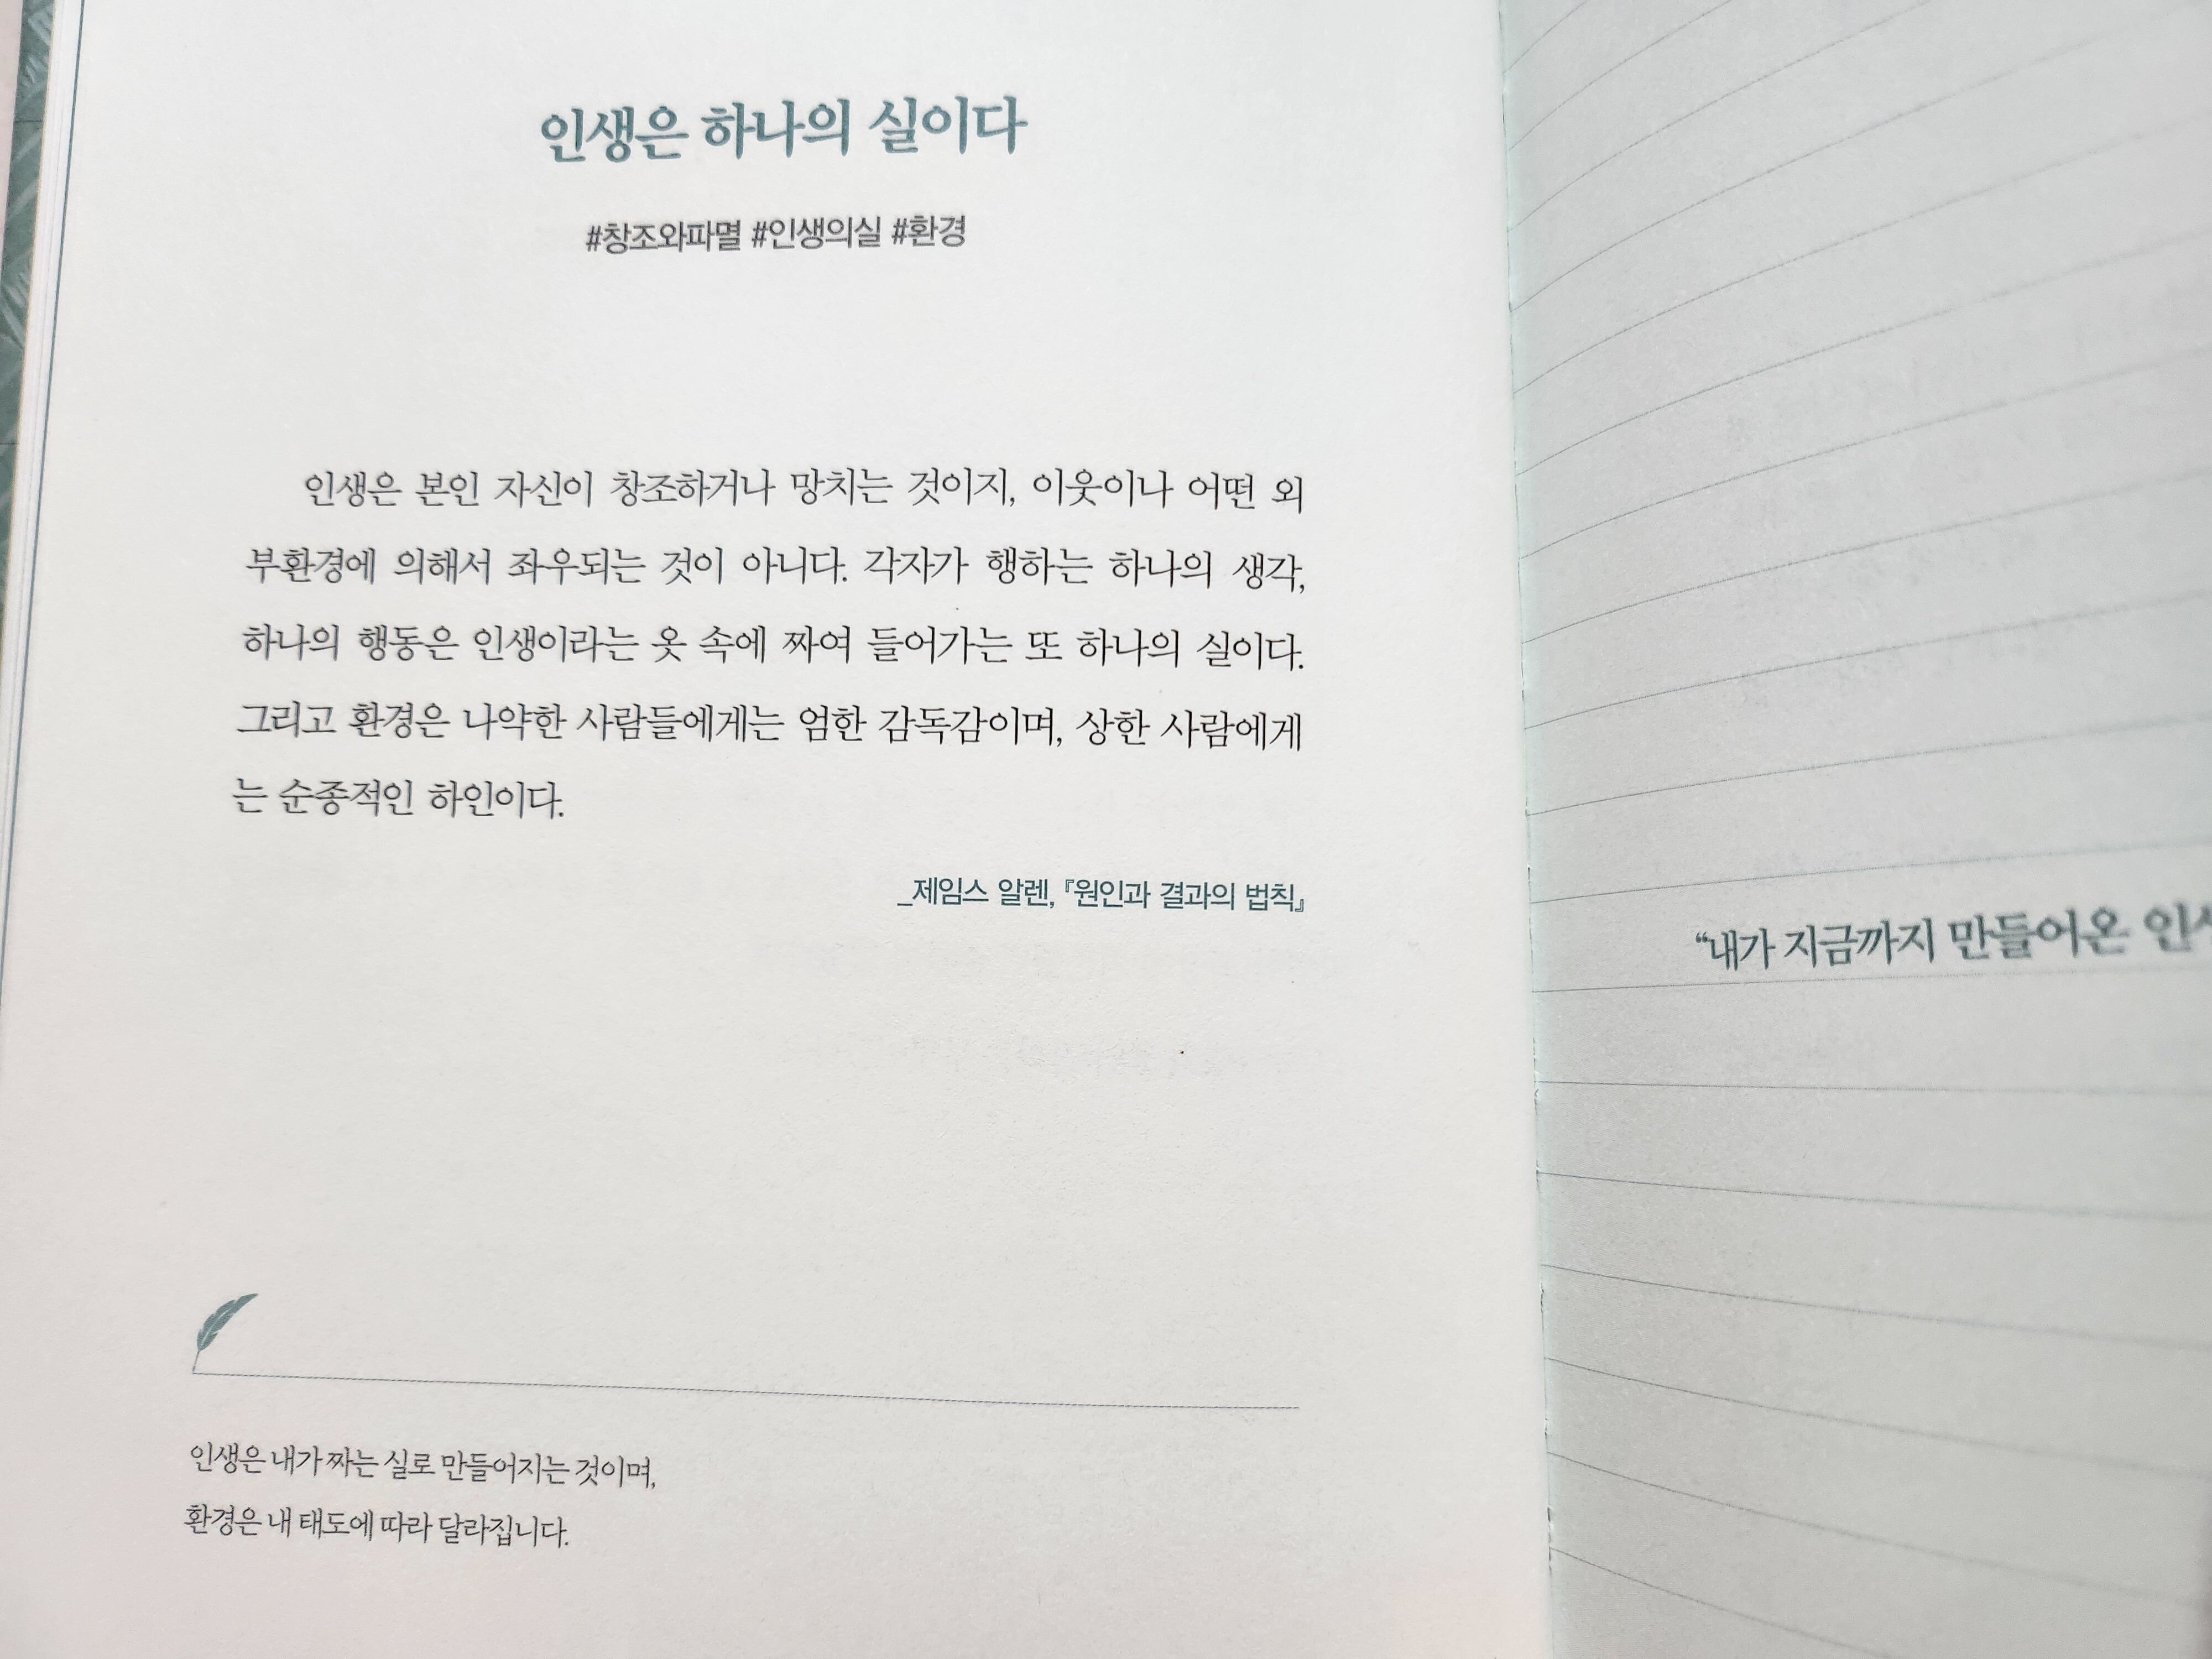 인생은 하나의 실이다
#창조와파멸 #인생의실 #환경
인생은 본인 자신이 창조하거나 망치는 것이지, 이웃이나 어떤 외
부환경에 의해서 좌우되는 것이 아니다. 각자가 행하는 하나의 생각,
하나의 행동은 인생이라는 옷 속에 짜여 들어가는 또 하나의 실이다.
그리고 환경은 나약한 사람들에게는 엄한 감독감이며, 상한 사람에게
는 순종적인 하인이다.
_제임스 알렌, 『원인과 결과의 법칙』
인생은 내가 짜는 실로 만들어지는 것이며,
환경은 내 태도에 따라 달라집니다.
“내가 지금까지 만들어온